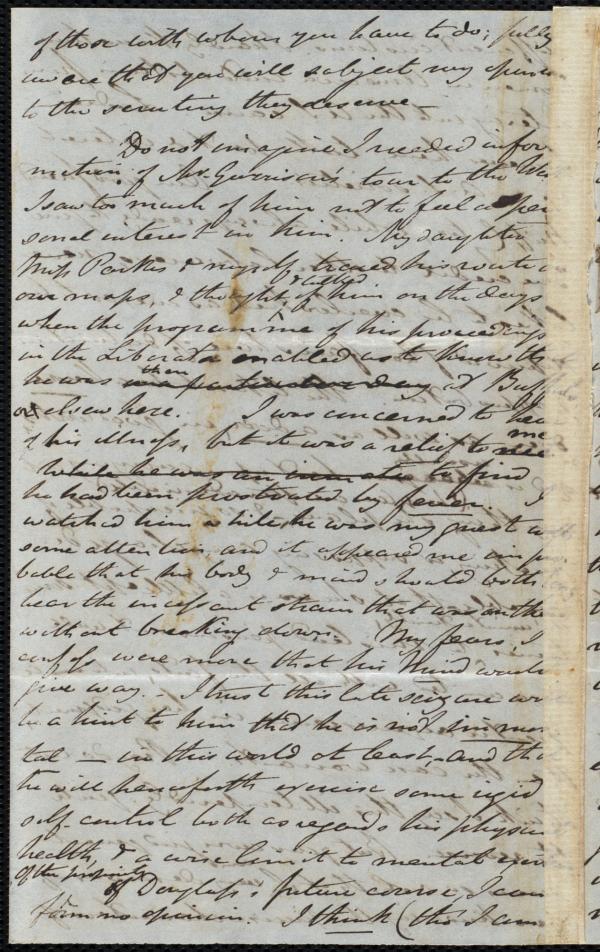 of those with whom you have to do; fully
aware that you will subject my opinion
to the scrutiny they deserve —
Do not imagine I needed infor
mation of Mr. Garrison's tour to the We
I saw too much of him not to feel a per
sonal interest in him. My daughter
Miss Parkes & myself traced his route o
our maps, & thought & talked of him on the days
when the programme of his proceedings
in the Liberator enabled us to know th
he was then in a particular day at Buff
or elsewhere. I was concerned to hea
of his illness, but it was a relief to me
while he was an inmate to find
he had been prostrated by fever. I
watched him while he was my guest w
some attention, and it appeared me impro
bable that his body & mind should both
bear the incessant strain that was on the
without breaking down. My fears, I
confess were more that his Mind would
give way. – I trust this late seizure wi
be a hint to him that he is not immor
tal — in this world at least, and tha
he will henceforth exercise some rigid
self control both as regards his physic
health, & a wise limit to mental exer
of the
of Douglass's future course, I can
form no opinion. I think (tho' I am